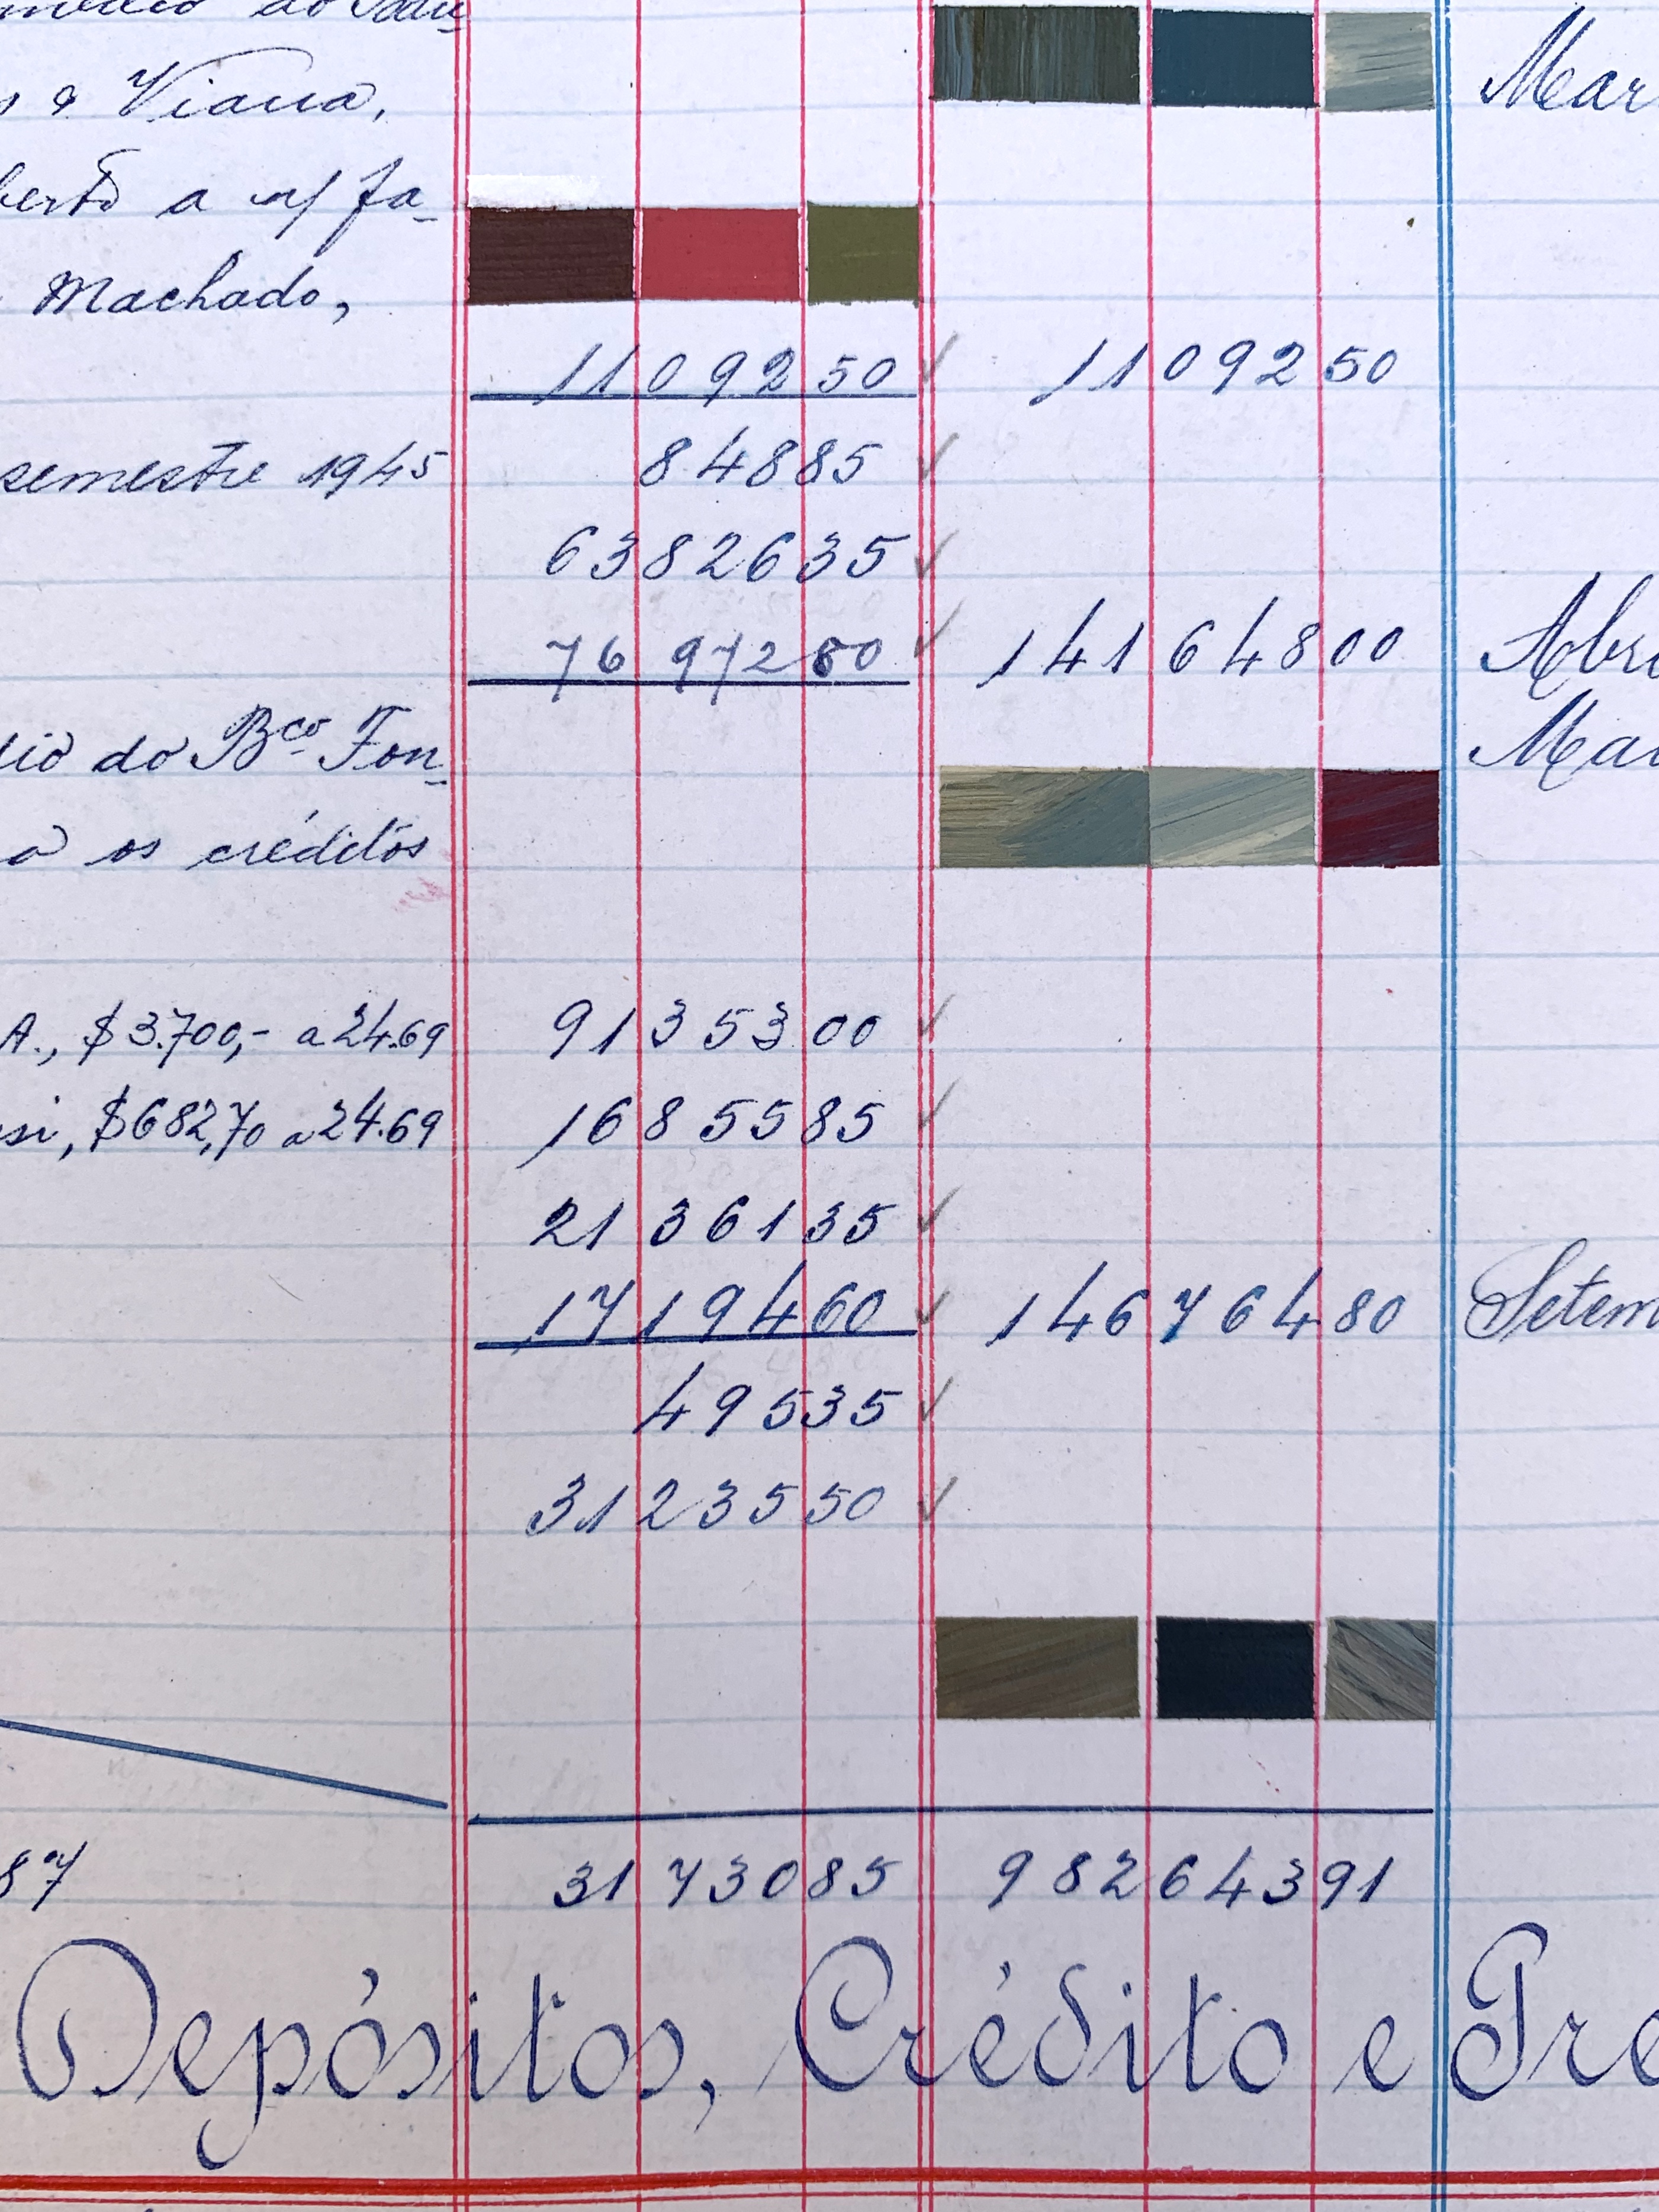 & Viana,
a n/ fa-
Machado,
1109250 1109250
semestre 1945 84885
6382635
7697280 14164800
do Bco Fon-
os créditos
A., $3.700,- a 24.69 9135300
$682,70 a 24.69 1685585
2136135
1719460 14676480
49535
3123550
87 3173085 98264391
Depósitos, Crédito e